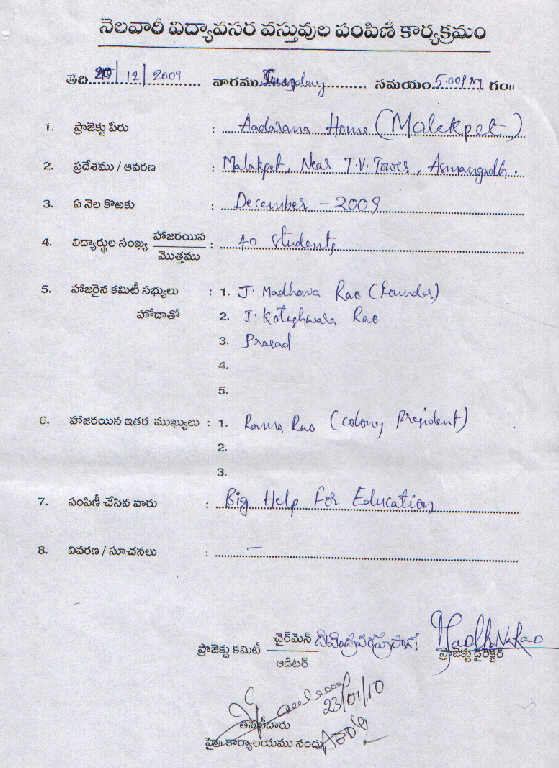 నెలవారీ విద్యావసర వస్తువుల పంపిణీ కార్యక్రమం
తేది 20/12/2009 వారము Sunday సమయం 5.00PM గం॥
1. ప్రాజెక్టు పేరు : Aadarana Home (Malekpet)
2. ప్రదేశము / ఆవరణ : Malakpet, Near T.V. Tower, Asmangadh.
3. ఏ నెల కొఱకు : December - 2009
4. విద్యార్థుల సంఖ్య హాజరయిన / మొత్తము : 40 students
5. హాజరైన కమిటీ సభ్యులు : 1. J. Madhava Rao (Founder)
హోదాతో 2. J. Koteshwara Rao
3. Prasad
4.
5.
6. హాజరయిన ఇతర ముఖ్యులు : 1. Rama Rao (colony president)
2.
3.
7. పంపిణీ చేసిన వారు : Big Help For Education
8. వివరణ / సూచనలు : -
ప్రాజెక్టు కమిటీ చైర్‌మెన్ / ఆడిటర్
ప్రాజెక్టు డైరెక్టర్
23/01/10
తనిఖీదారు
ప్రైవేట్ కార్యాలయము నందు